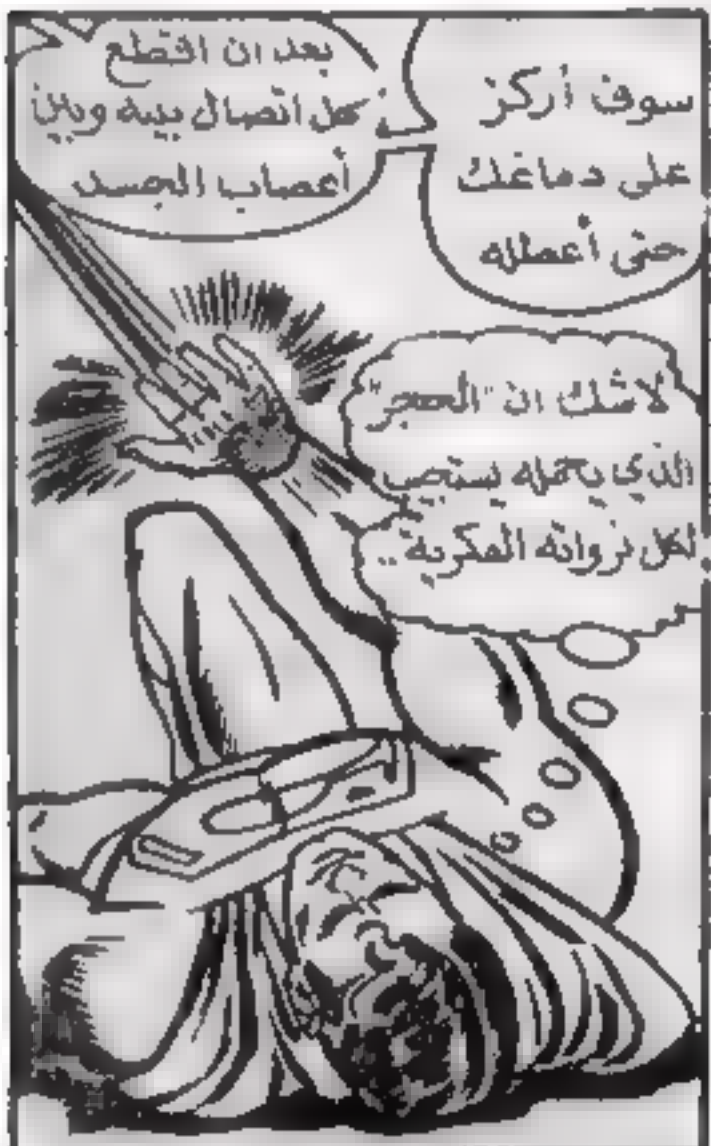 سوف أركز
على دماغك
حتى أعطله
بعد ان اقطع
كل اتصال بينه وبين
أعصاب الجسد
لاشك ان "الحجر"
الذي يحمله يستجيب
لكل نزواته الفكرية..